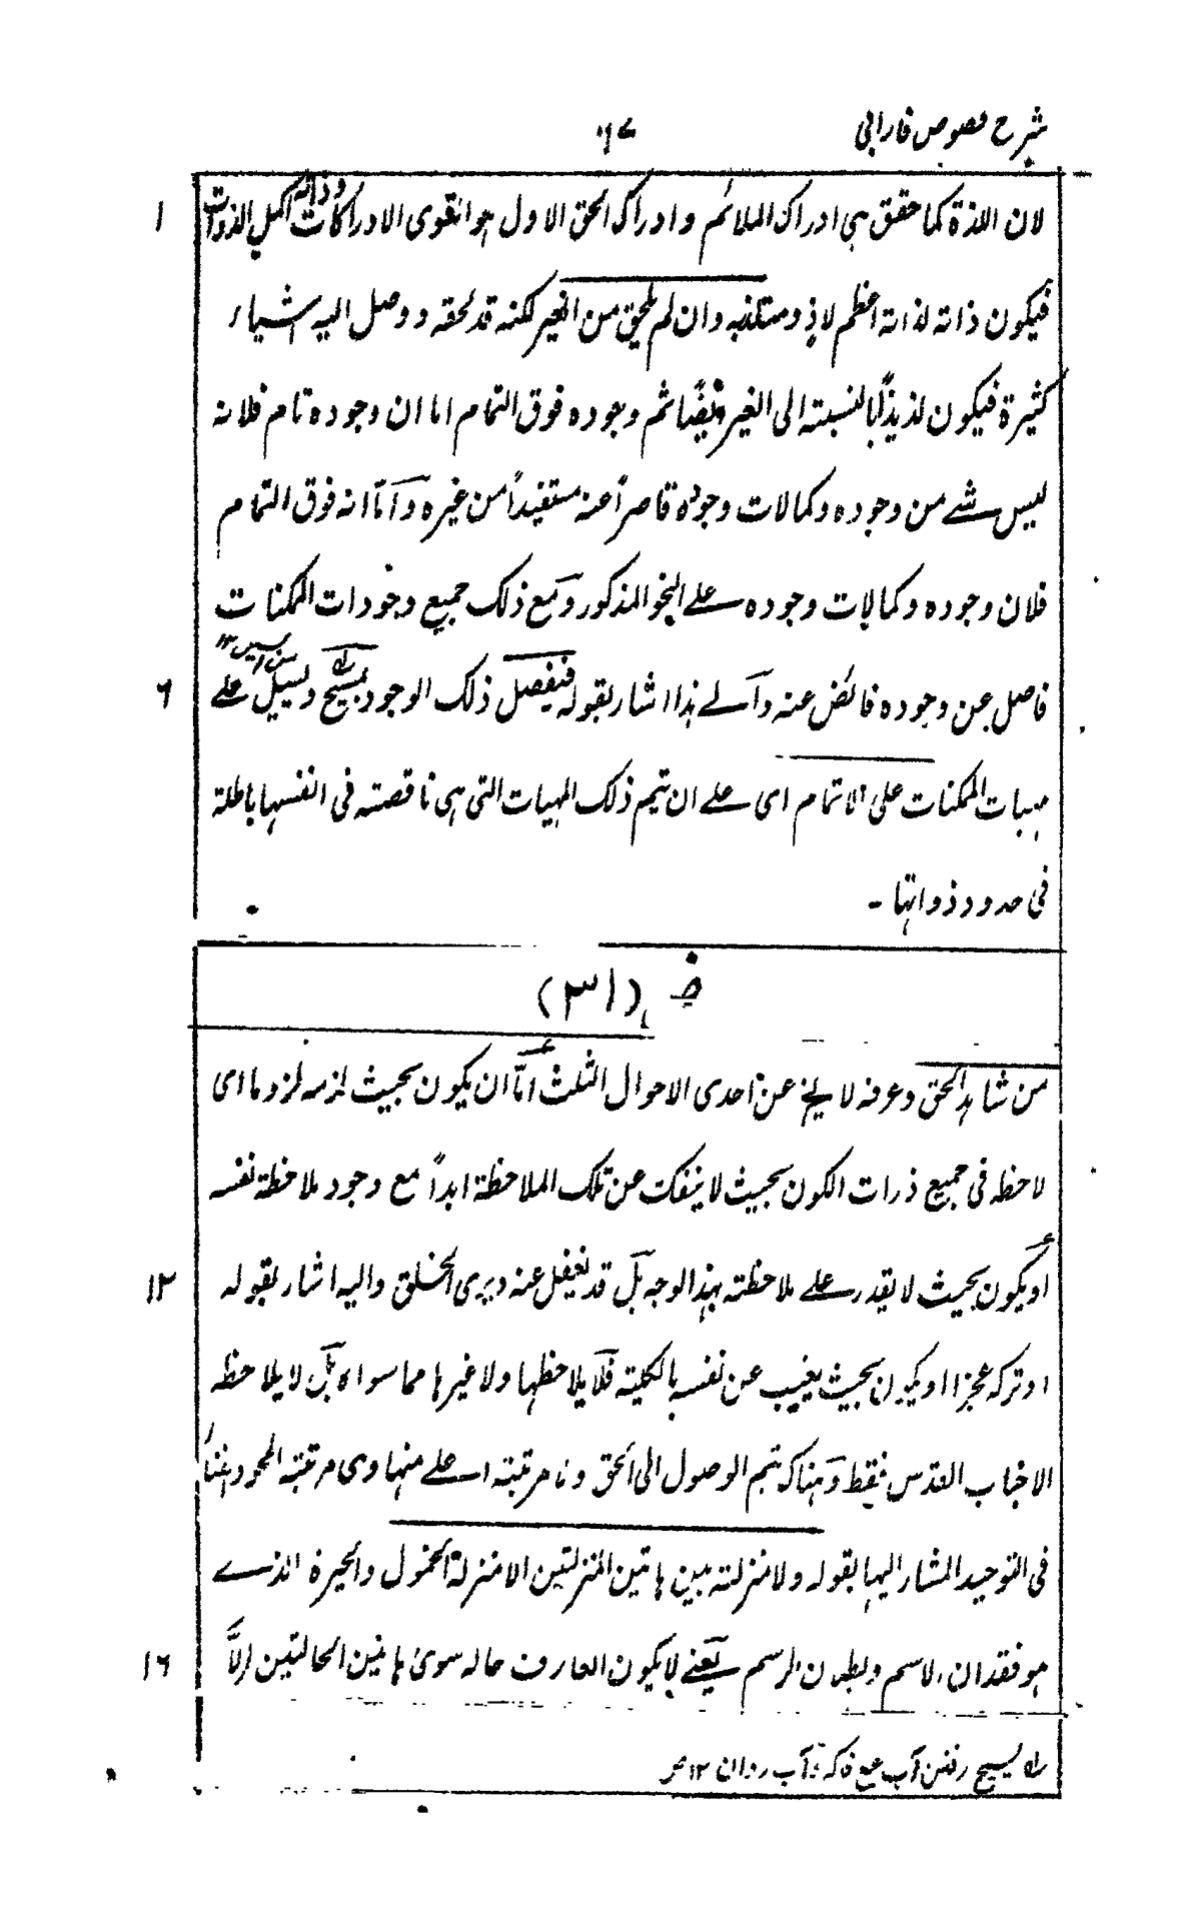 شرح فصوص فارابی
۶۷
لان اللذة كما حقق ہی ادراک الملائم وادراک الحق الاول ہو اقوی الادراکات وذاته اکمل الذوات
فیکون ذاته لذاته اعظم لاذ ومستلذبه وان لم یلحق من الغیر لکنه قد لحقه ووصل الیه اشیاء
کثیرة فیکون لذیذًا بالنسبته الی الغیر ایضًا ثم وجوده فوق التمام اما ان وجوده تام فلانه
لیس شے من وجوده وکمالات وجوده قاصراً عنه مستفیداً من غیره وآمّا انه فوق التمام
فلان وجوده وکمالات وجوده علے النحو المذکور ومع ذلک جمیع وجودات الممکنات
فاصل عن وجوده فائض عنه وآلے ہذا اشار بقوله فیفصل ذلک الوجود یسیح ویسیل علے
مہیات الممکنات علی الاتمام ای علے ان تتیم ذلک المہیات التی ہی ناقصته فی انفسہا باطلة
فی حدود ذواتہا -
فص (۳۱)
من شاہد الحق وعرفه لا یخ عن احدی الاحوال الثلث امّا ان یکون بحیث لزمه لزوما ای
لاحظه فی جمیع ذرات الکون بحیث لا ینفکت عن تلک الملاحظة ابداً مع وجود ملاحظة نفسه
او یکون بحیث لا یقدر علے ملاحظته بہذا الوجه بل قد یغفل عنه ویری الخلق والیه اشار بقوله
او ترکه عجزا او یکون بحیث یغیب عن نفسه بالکلیته فلا یلاحظہا ولا غیرہا مما سواه بل لا یلاحظ
الا جناب القدس فقط وہناک تتم الوصول الی الحق ونا مرتبته اعلے منہا وہی مرتبته المحو والفناء
فی التوحید المشار الیہا بقوله ولا منزلته بین ہاتین المنزلتین الا منزلة الخمول والحیرة الذے
ہو فقدان الاسم وبطلان الرسم یعنے لا یکون العارف حاله سوی ہاتین الحالتین الّا
۱
۶
۱۲
۱۶
لہ یسیح رفتن آب
آب روان ۱۲